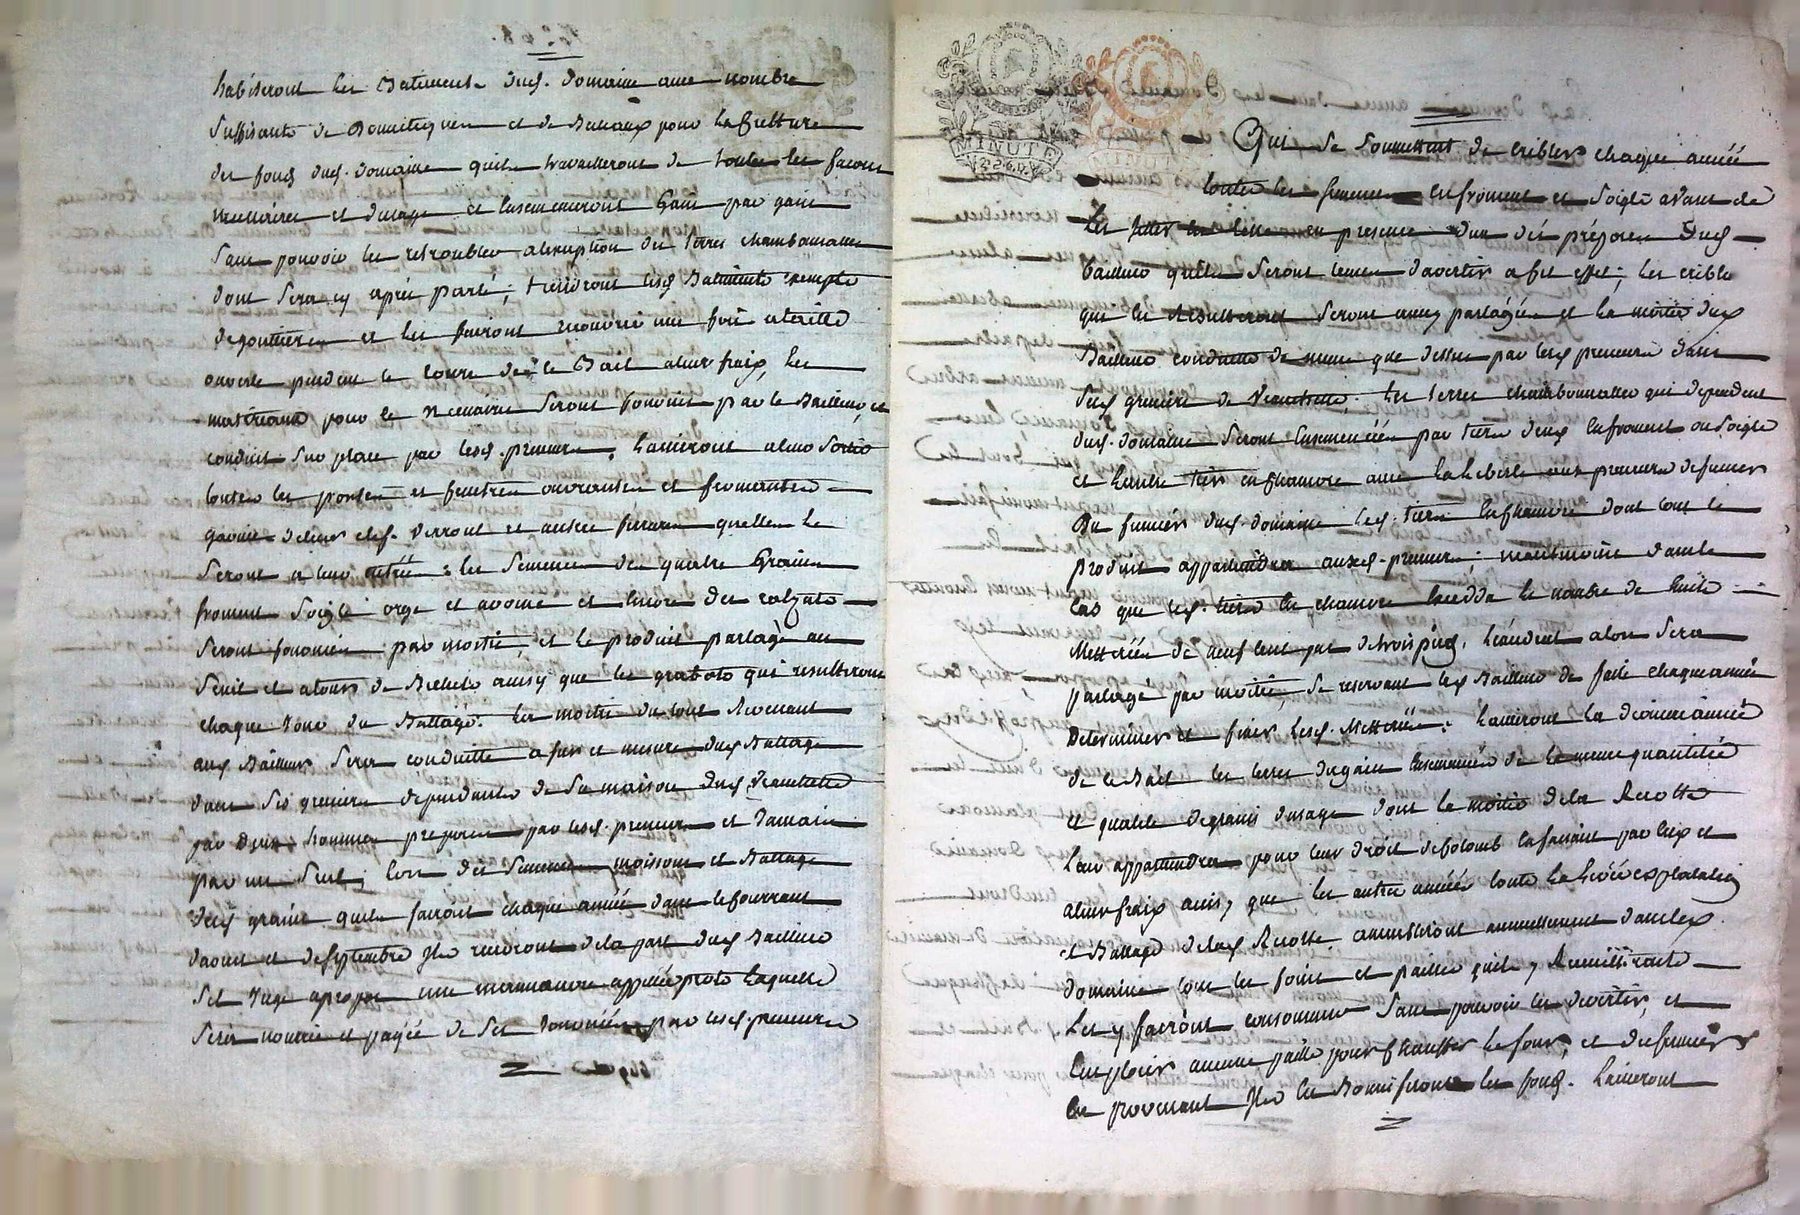 habiteront les Batiments dud. domaine avec nombre
suffisante de Domestiques et de Bestiaux pour la Culture
des fonds dud. domaine quils travailleront de toutes les facons
necessaires et dusage et Ensemenceront Gain par gain
sans pouvoir les retroubler alexception des terres chambonnalles
dont sera cy après parlé; tiendront lesd Batiments exempts
degouttieres et les feront recouvrir une fois a taille
ouverte pendant le cours de ce Bail aleur frais, les
materiaux pour le necessaire seront fournis par le Bailleur, et
conduit sur place par lesd. preneurs, Laisseront aleur sortie
toutes les portes et fenêtres ouvrantes et fermantes
garnies deleur clef. verroux et autres ferrures quelles le
seront a leur entrée: les semences des quatre Grains
froment Soigle orge et avoine et encore des
seront fournies par moitié, et le produit partagé au
seuil et atour de Bichets aussy que les grabots qui resulteront
chaque jour du Battage. La moitié du tout Revenant
aud Bailleur sera conduitte a fur et mesure dud Battage
dans ses greniers dependants de sa maison dud
par deux hommes preposés par lesd. preneurs et
par un seul; Lors des semences moissons et Battage
desd grains quils fairont chaque année dans lecourrant
daoust et deseptembre Ils recevront dela part dud Bailleur
Sil juge apropos une manoeuvre laquelle
sera nourrie et payée de ses journées par lesd. preneurs
MINUTE
MINUTE
Qui se soumettent de cribler chaque année
toutes les semences en froment et soigle avant de
Les jetter en terre en presence dun des préposés dud
bailleur quils seront tenus davertir a cet effet; les cribles
qui en resulteront seront aussy partagées et la moitié dud
Bailleur conduitte de meme que dessus par lesd preneurs dans
sesd greniers de; les terres chambonnalles qui dependent
dud. domaine seront Ensemencées par tiers deux Enfroment ou Soigle
et Lautre tiers en Chanvre avec la Liberté aux preneurs defumer
Du fumier dud. domaine led. tiers En Chanvre dont tout le
produit appartiendra auxd. preneurs; neantmoins dans le
cas que led. tiers En chanvre Excedda le nombre de huit
Metterées de neuf cent pas de trois pieds, Lexcedent alors sera
partagé par moitié, se reservant led Bailleur de faire chaque année
Determiner et fixer lesd. Metterées: Laisseront la derniere année
de ce Bail les terres dugain Ensemencées de la meme quantitée
et qualité degrains dusage dont la moitié dela Recolte
leur appartiendra pour leur droit de en faisant par eux et
aleur frais ainsy que les autres années toute la Levée exploitation
et Battage delad Recolte amuseront annuellement dansled
domaine tous les foins et pailles quils y Recuilliront
Les y fairont consommer Sans pouvoir les divertir, et
Employer aucune paille pour Chauffer le four, et des fumiers
En provenant Ils En Bonnifieront les fonds. Laisseront